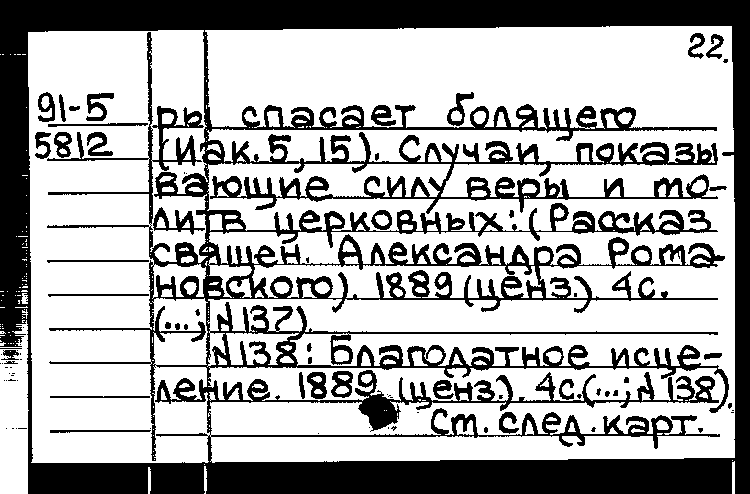 22.
91-5
5812
ры спасает болящего
(Иак. 5, 15). Случаи, показы-
вающие силу веры и мо-
литв церковных: (Рассказ
священ. Александра Рома-
новского). 1889 (ценз.). 4с.
(...; №137).
№138: Благодатное исце-
ление. 1889 (ценз.). 4с. (...; №138).
Ст. след. карт.